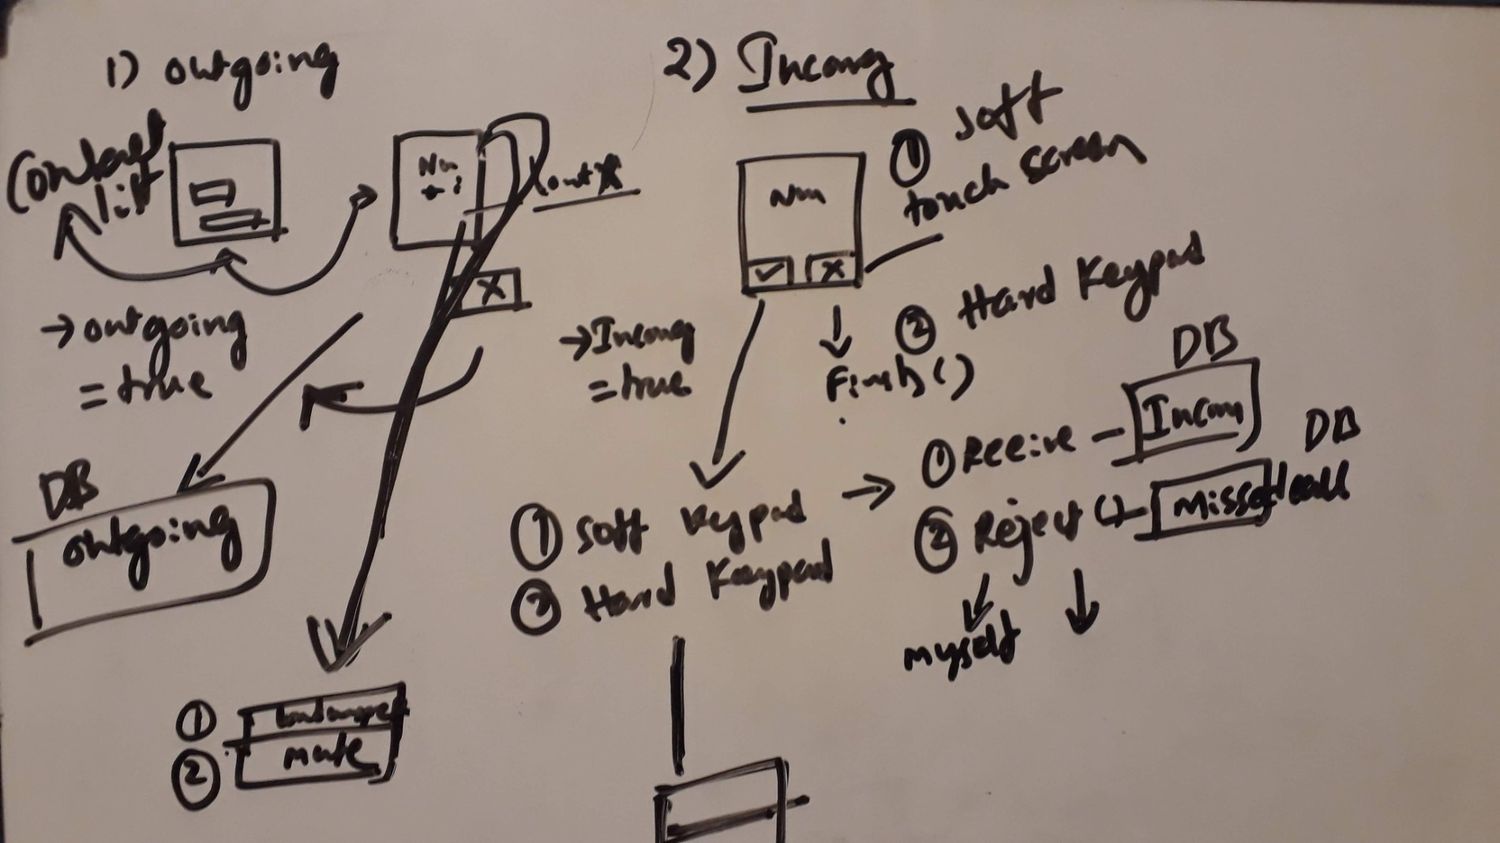 1) outgoing
Contact
list
Nu
→ outgoing
= true
DB
outgoing
X
①
② mute
2) Incomg
Num
✓ X
① soft
touch screen
② Hard Keypad
→ Incomg
= true
Finish()
① soft keypad
② Hard Keypad
→ ① Receive - Incom
DB
② Reject () - Missed call
DB
myself